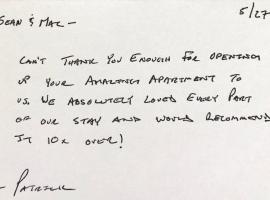 5/27
Sean & Mac –
Can't Thank You Enough For Opening
up Your Amazing Apartment To
us. We Absolutely Loved Every Part
of our stay and would recommend
It 10x over!
– Patrick